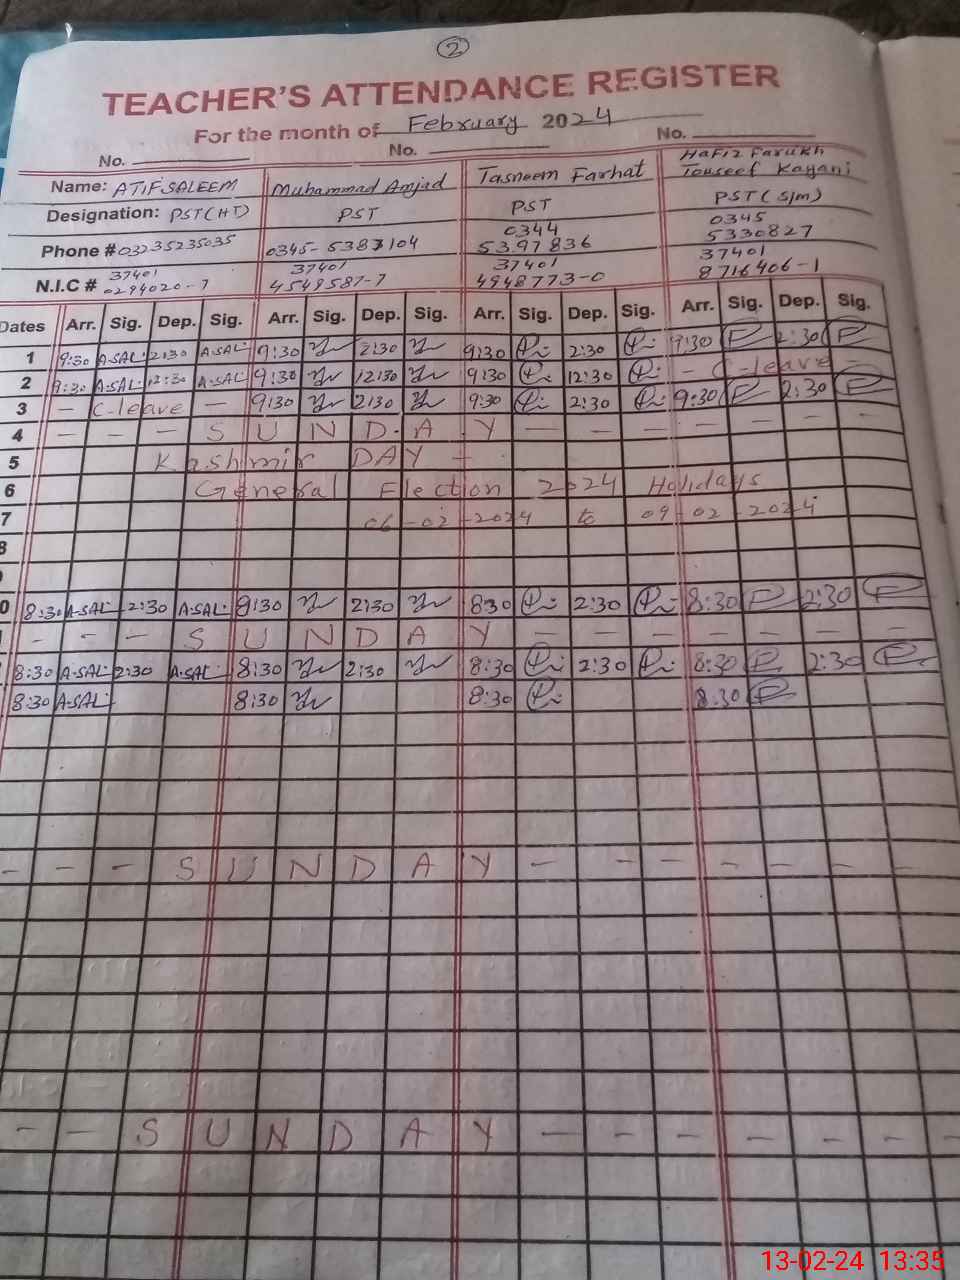 2
TEACHER'S ATTENDANCE REGISTER
For the month of February 2024
No. No. No.
Name: ATIF SALEEM Muhammad Amjad Tasneem Farhat Hafiz Farukh Touseef Kayani
Designation: PST(HT) PST PST PST (S/m)
Phone # 03235235035 0345-5387104 0344 5397836 0345 5330827
N.I.C # 37401 0294020-7 37401 4549587-7 37401 4948773-0 37401 8716406-1
Dates Arr. Sig. Dep. Sig. Arr. Sig. Dep. Sig. Arr. Sig. Dep. Sig. Arr. Sig. Dep. Sig.
1 9:30 A.SAL. 2:30 A.SAL. 9:30 2:30 9:30 2:30 9:30 2:30
2 9:30 A.SAL. 12:30 A.SAL 9:30 12:30 9:30 12:30 - C-leave
3 - C-leave - 9:30 2:30 9:30 2:30 9:30 2:30
4 - - - S U N D A Y - - - - - - -
5 Kashmir DAY -
6 General Election 2024 Holidays
7 06-02-2024 to 09-02-2024
8
0 8:30 A.SAL. 2:30 A.SAL. 8:30 2:30 8:30 2:30 8:30 2:30
- - - S U N D A Y - - - - - - -
8:30 A.SAL. 2:30 A.SAL. 8:30 2:30 8:30 2:30 8:30 2:30
8:30 A.SAL. 8:30 8:30 8:30
- - - S U N D A Y - - - - - - -
- - S U N D A Y - - - - - - - -
13-02-24 13:35